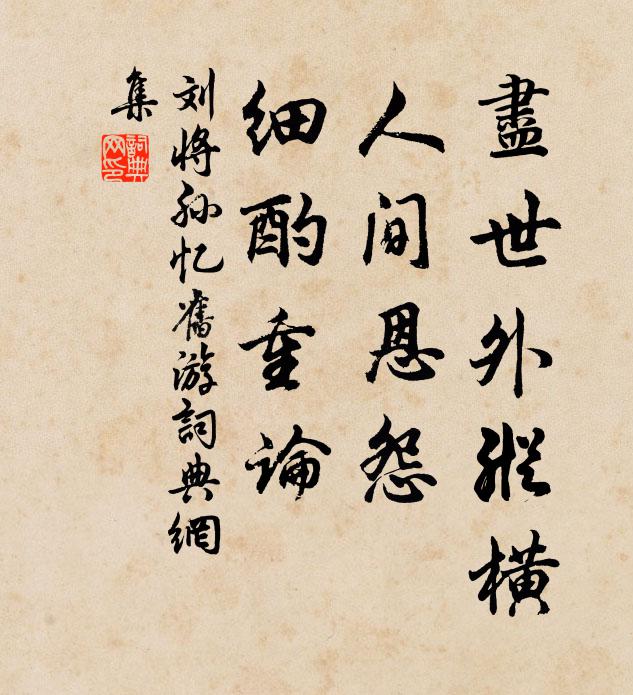 盡世外縱橫
人间恩怨
细酌重論
刘将孙忆舊游詞典網
集
詞典网印